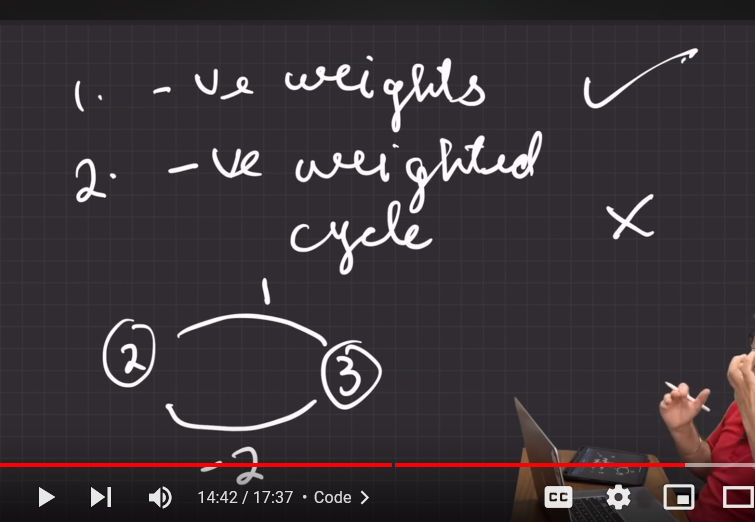 1. -ve weights
2. -ve weighted
cycle
1
2
3
-2
14:42 / 17:37 • Code
CC